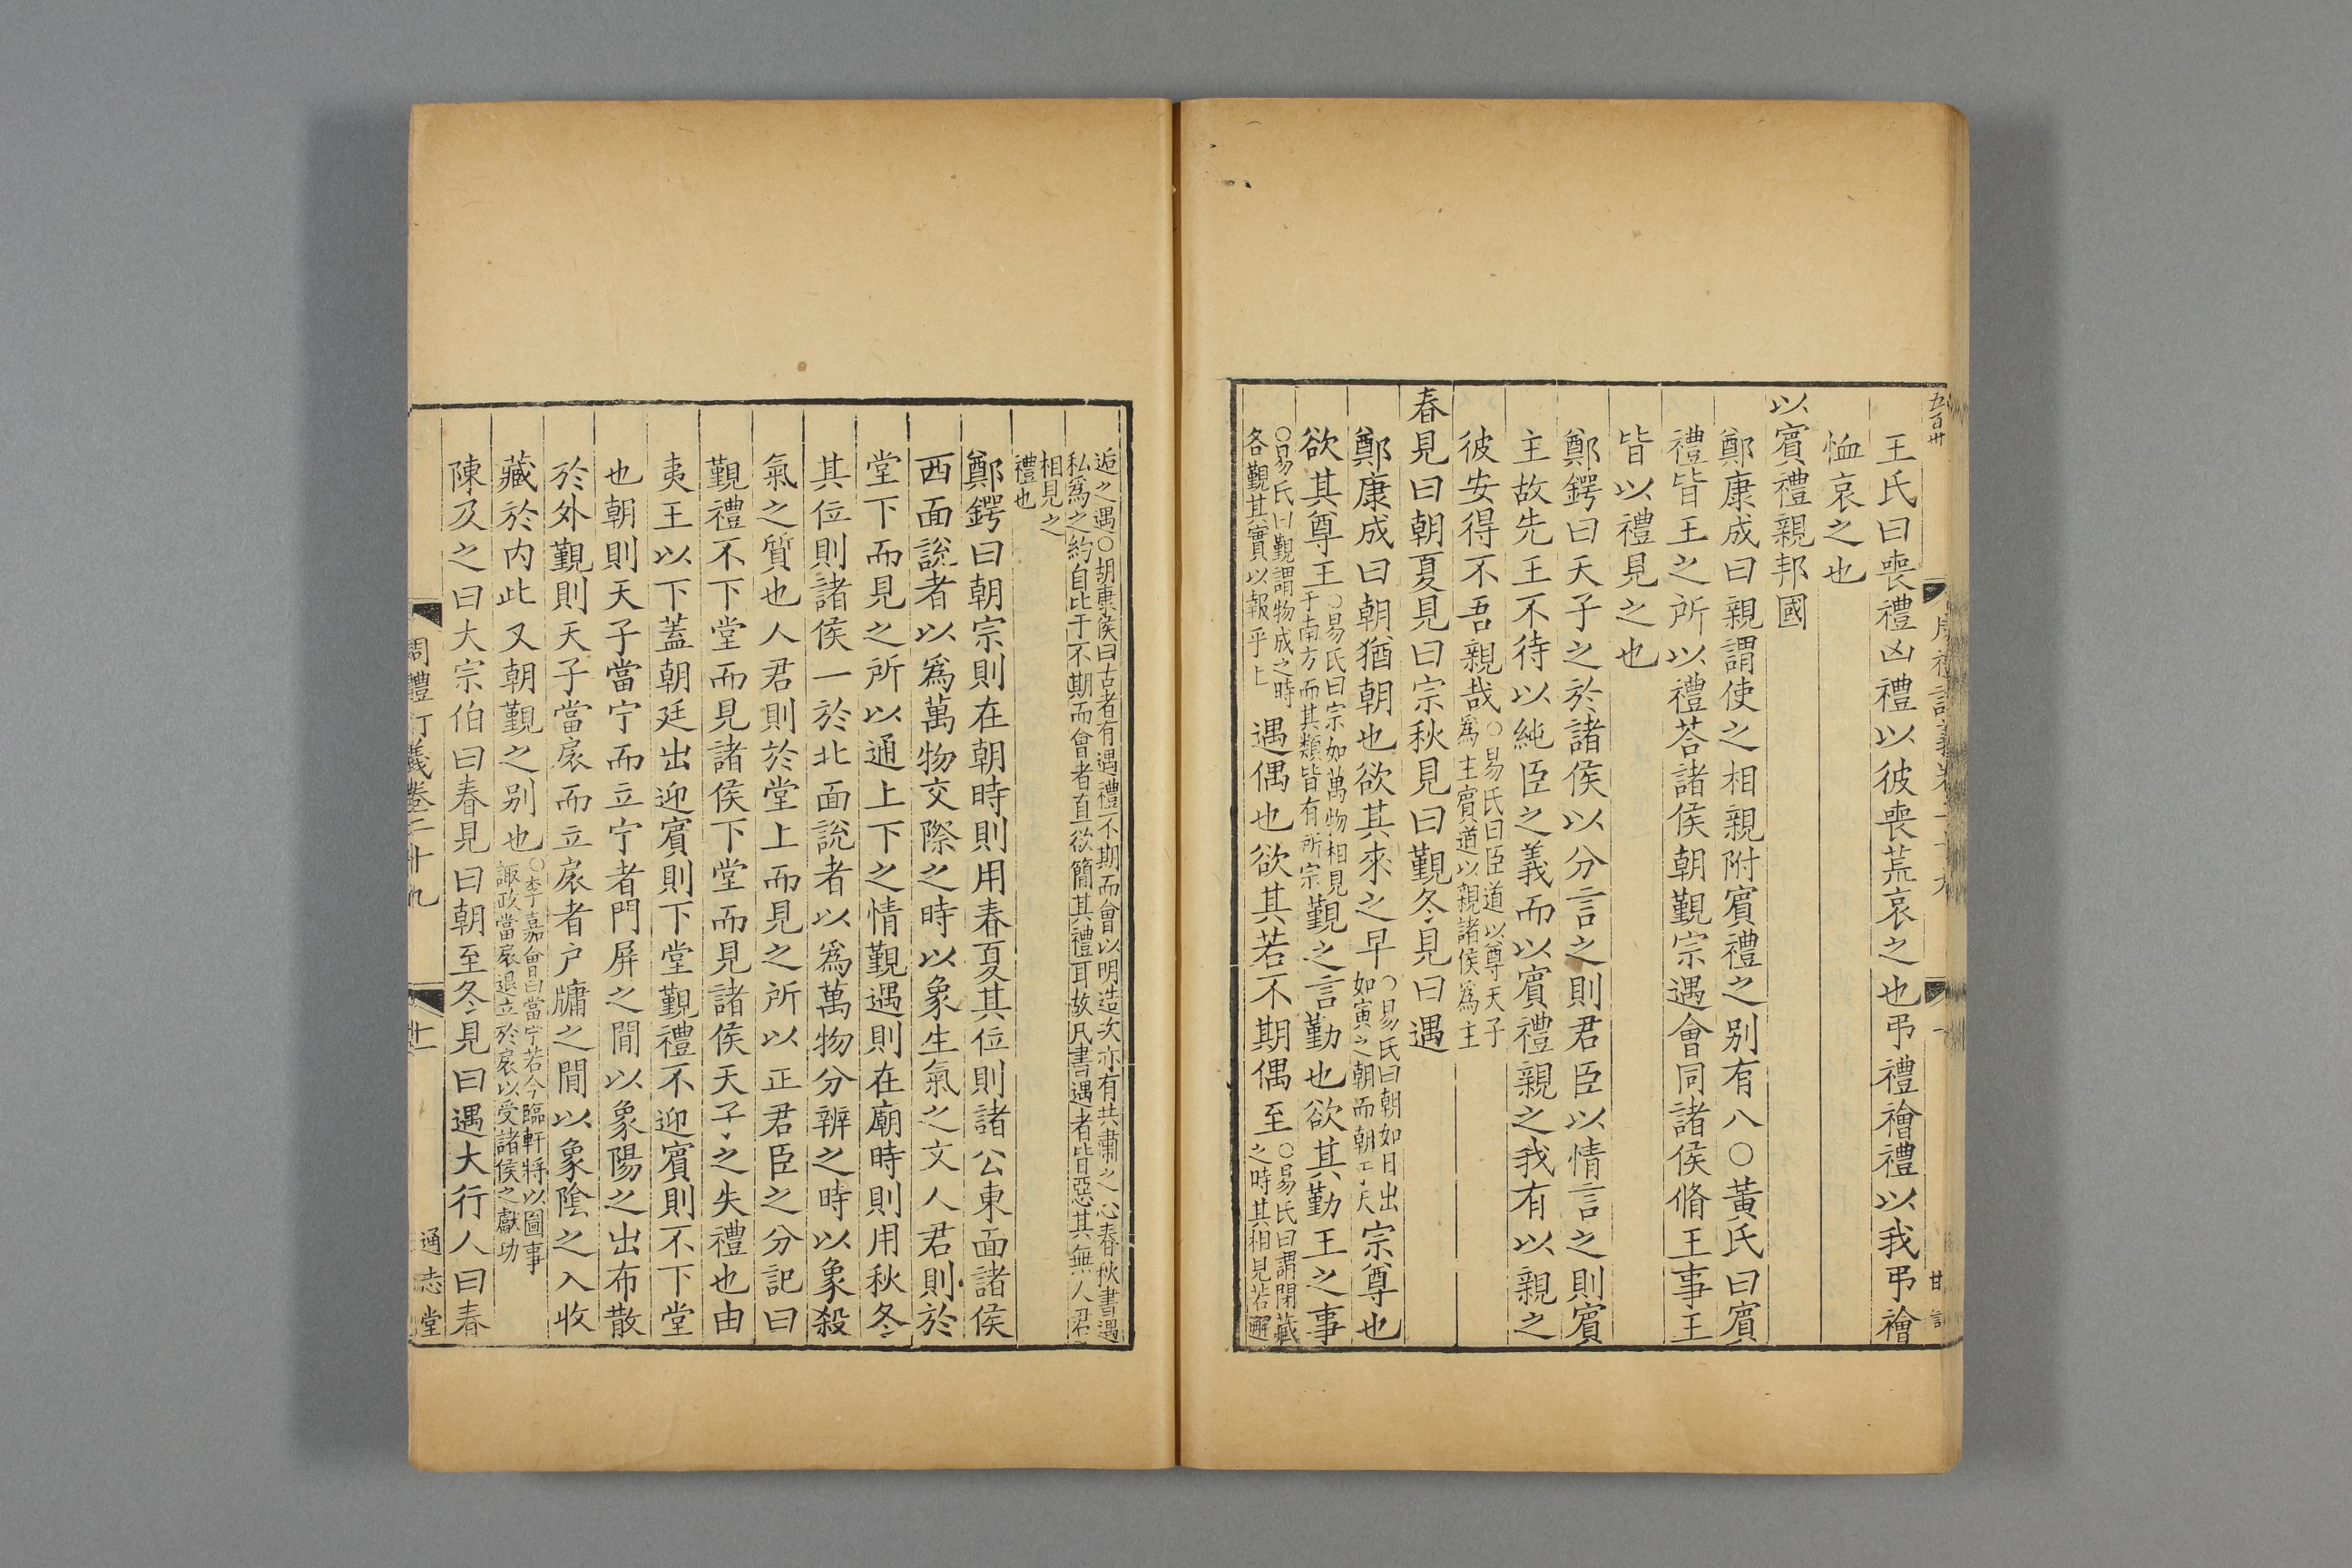 五百卅
王氏曰喪禮凶禮以彼喪荒哀之也弔禮禬禮以我弔禬
恤哀之也
以賓禮親邦國
鄭康成曰親謂使之相親附賓禮之别有八○黃氏曰賓
禮皆王之所以禮荅諸侯朝覲宗遇會同諸侯脩王事王
皆以禮見之也
鄭鍔曰天子之於諸侯以分言之則君臣以情言之則賓
主故先王不待以純臣之義而以賓禮親之我有以親之
彼安得不吾親哉○易氏曰臣道以尊天子
爲主賓道以親諸侯爲主
春見曰朝夏見曰宗秋見曰覲冬見曰遇
鄭康成曰朝猶朝也欲其來之早○易氏曰朝如日出
如寅之朝而朝天宗尊也
欲其尊王○易氏曰宗如萬物相見
于南方而其類皆有所宗覲之言勤也欲其勤王之事
○易氏曰覲謂物成之時
各覲其實以報乎上遇偶也欲其若不期偶至○易氏曰謂閉藏
之時其相見若邂
逅之遇○胡康侯曰古者有遇禮不期而會以明造次亦有共肅之心春秋書遇
私爲之約自比于不期而會者直欲簡其禮耳故凡書遇者皆惡其無人君
相見之
禮也
鄭鍔曰朝宗則在朝時則用春夏其位則諸公東面諸侯
西面說者以爲萬物交際之時以象生氣之文人君則於
堂下而見之所以通上下之情覲遇則在廟時則用秋冬
其位則諸侯一於北面說者以爲萬物分辨之時以象殺
氣之質也人君則於堂上而見之所以正君臣之分記曰
覲禮不下堂而見諸侯下堂而見諸侯天子之失禮也由
夷王以下蓋朝廷出迎賓則下堂覲禮不迎賓則不下堂
也朝則天子當宁而立宁者門屏之閒以象陽之出布散
於外覲則天子當扆而立扆者户牖之閒以象陰之入收
藏於内此又朝覲之别也○李嘉會曰當宁若今臨軒將以圖事
諏政當扆退立於扆以受諸侯之獻功
陳及之曰大宗伯曰春見曰朝至冬見曰遇大行人曰春
周禮訂義卷二十九
十一
通志堂